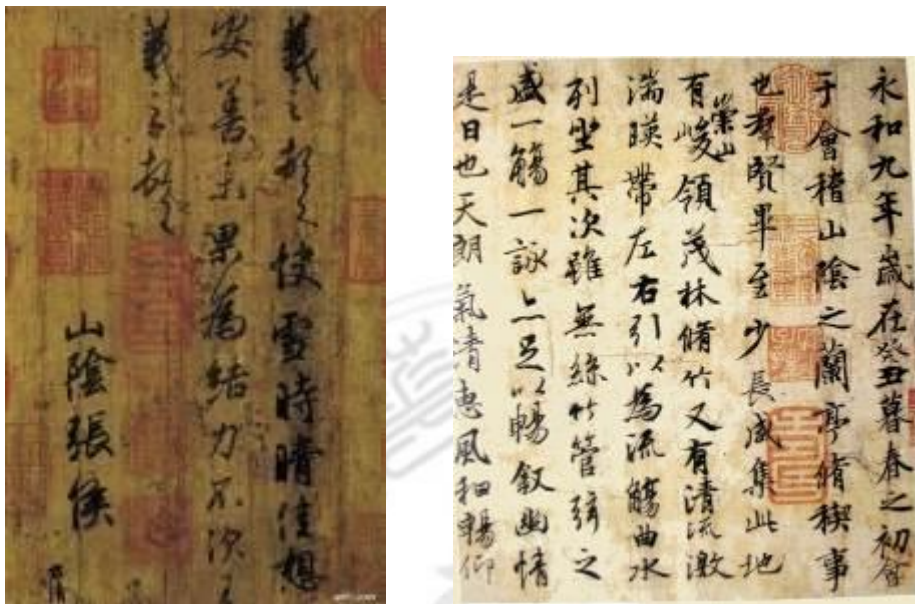 羲之頓首快雪時晴佳想
安善未果為結力不次王
羲之頓首
山陰張侯
永和九年歲在癸丑暮春之初會
于會稽山陰之蘭亭脩稧事
也羣賢畢至少長咸集此地
有崇山峻領茂林脩竹又有清流激
湍暎帶左右引以為流觴曲水
列坐其次雖無絲竹管弦之
盛一觴一詠亦足以暢叙幽情
是日也天朗氣清惠風和暢仰